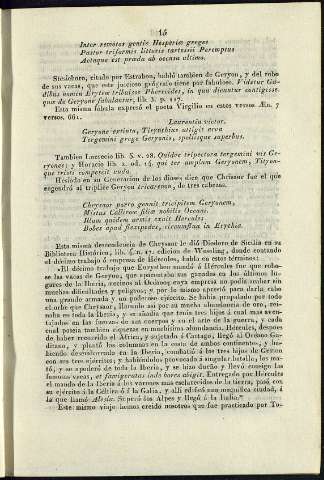 15
Inter remotos gentis Hesperiæ greges
Pastor triformis littoris tartessii Peremptus
Actaque est præda ab occasu ultimo.
Stesichoro, citado por Estrabon, habló tambien de Geryon, y del robo
de sus vacas, que este juicioso geógrafo tiene por fabuloso. Videtur Ga-
dibus nomen Erytea tribuisse Pherecides, in qua dicuntur contigisse
quæ de Geryone fabulantur, lib. 3. p. 117.
Esta misma fábula expresó el poeta Virgilio en estos versos Æn. 7
versos. 661.
Laurentia victor.
Geryone extinto, Tirynthius attigit arva
Tergemini grege Geryonis, spoliisque superbus.
Tambien Lucrecio lib. 5. v. 28. Quidve tripectora tergemini vis Ge-
ryones; y Horacio lib. 2. od. 14. qui ter amplum Geryonem, Tityon-
que tristi compescit unda.
Hesiodo en su Generacion de los dioses dice que Chrisaor fue el que
engendró al triplice Geryon tricoreano, de tres cabezas.
Chrysaor porro genuit tricipitem Geryonem,
Mistus Callirroe filiæ nobilis Oceani.
Illum quidem armis exuit Hercules
Bobes apud flexipedes, circumflua in Erythia.
Esta misma descendencia de Chrysaor le dió Diodoro de Sicilia en su
Biblioteca Histórica, lib. 4. n. 17. edicion de Wesseling, donde contando
el décimo trabajo ó empresa de Hércules, habla en estos términos:
»El décimo trabajo que Eurystheo mandó á Hércules fue que roba-
se las vacas de Geryon, que apacentaba sus ganados en los últimos lu-
gares de la Iberia, contiguos al Océano; cuya empresa no podia acabar sin
muchas dificultades y peligros; y por lo mismo aprestó para darla cabo
una grande armada y un poderoso ejército. Se habia propalado por todo
el orbe que Chrysaor, llamado asi por su mucha abundancia de oro, rei-
naba en toda la Iberia, y se añadia que tenia tres hijos á cual mas aven-
tajados en las fuerzas de sus cuerpos y en el arte de la guerra, y cada
cual poseia tambien riquezas en muchísima abundancia. Hércules, despues
de haber recorrido el África, y sujetado á Cartago, llegó al Océano Ga-
ditano, y plantó las columnas en la costa de ambos continentes, y ha-
biendo desembarcado en la Iberia, combatió á los tres hijos de Geryon
con sus tres ejércitos; y habiéndolos provocado á singular batalla, los ma-
tó, y se apoderó de toda la Iberia, y se hizo dueño y llevó consigo las
famosas vacas, et famigeratas inde boves abigit. Entregado por Hércules
el mando de la Iberia á los varones mas esclarecidos de la tierra, pasó con
su ejército á la Céltica ó á la Galia, y allí edificó una magnífica ciudad, á
la que llamó Alesia. Superó los Alpes y llegó á la Italia."
Este mismo viaje hemos creido nosotros que fue practicado por To-